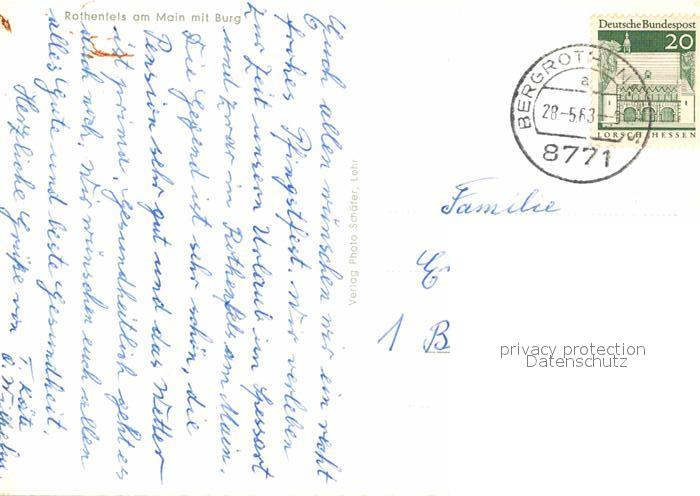 Rothenfels am Main mit Burg
Euch allen wünschen wir ein recht
frohes Pfingstfest. Wir verleben
zur Zeit unsern Urlaub im Spessart
und zwar in Rothenfels am Main.
Die Gegend ist sehr schön, die
Pension sehr gut und das Wetter
ist prima, Gesundheitlich geht es
auch wohl. Wir wünschen euch allen
alles Gute und beste Gesundheit.
Herzliche Grüße von
T. Käte
O. Wilhelm.
Verlag Photo Schäfer, Lohr
Deutsche Bundespost
20
LORSCH/HESSEN
28.-5.63
a
8771
Familie
E
1 B
privacy protection
Datenschutz